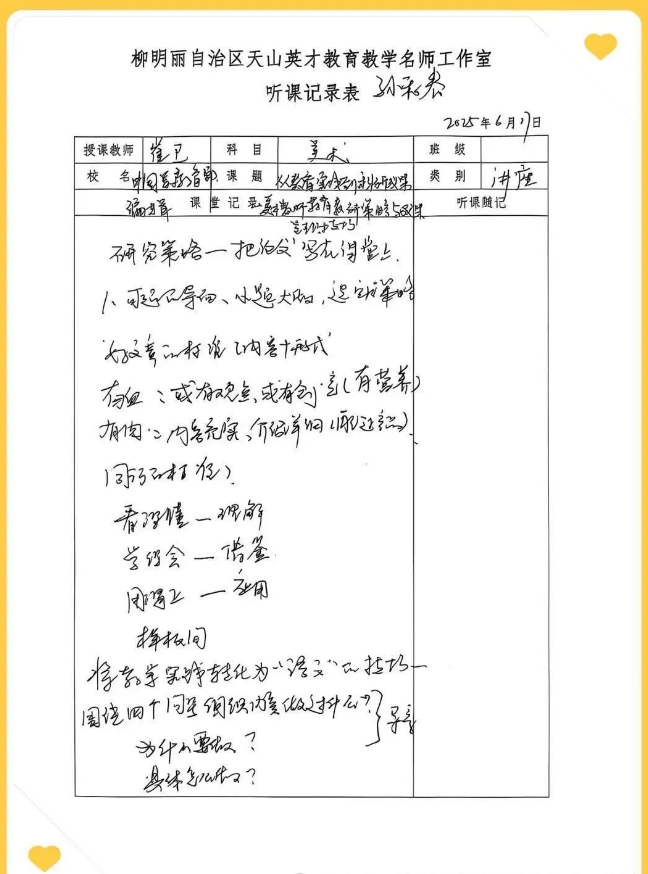 柳明丽自治区天山英才教育教学名师工作室
听课记录表
2025年6月17日
授课教师 崔卫 科目 美术 班级
校名 中国 课题 从教育实践到科研成果 类别 讲座
课堂记录 美术教师教育教研策略与成果 听课随记
研究策略一把论文写在课堂上.
1、问题导向、小题大做,选定策略
好文章的标准(内容+形式
有血:或有观点,或有创意(有营养)
有肉:内容充实、介绍详细
同行的标准)
看得懂—理解
学得会—借鉴
用得上—应用
样板间
将教学实践转化为“语文”的技巧—
围绕四个问题组织内容
为什么要做?
具体怎么做?